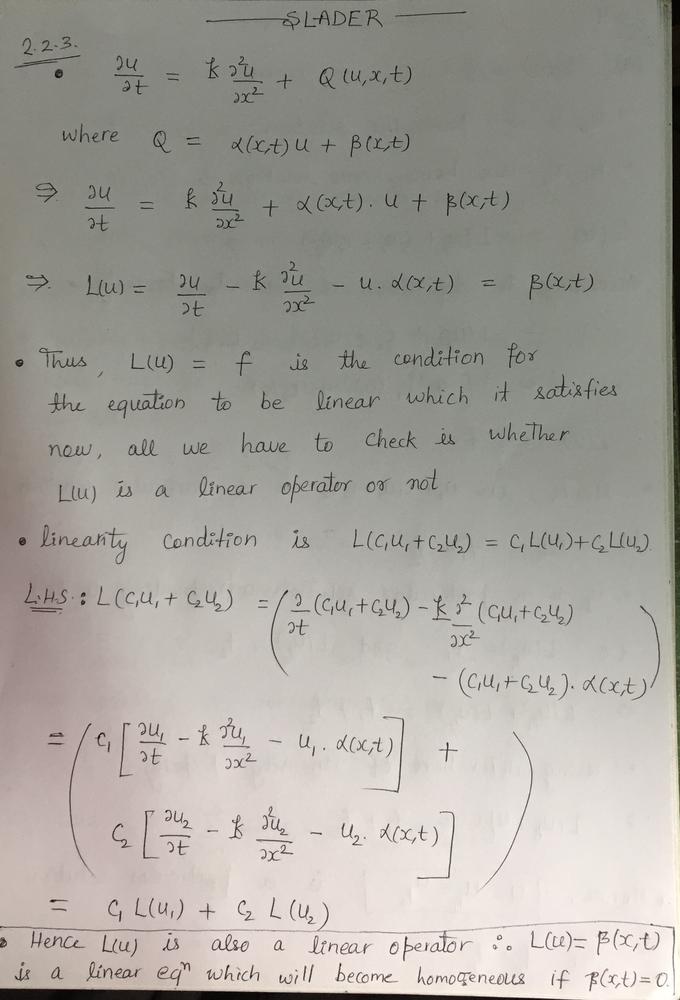 SLADER
2.2.3.
• ∂u/∂t = k ∂²u/∂x² + Q(u,x,t)
where Q = α(x,t)u + β(x,t)
⇒ ∂u/∂t = k ∂²u/∂x² + α(x,t). u + β(x,t)
⇒. L(u) = ∂u/∂t - k ∂²u/∂x² - u. α(x,t) = β(x,t)
• Thus, L(u) = f is the condition for
the equation to be linear which it satisfies
now, all we have to check is whether
L(u) is a linear operator or not
• linearity condition is L(c₁u₁+c₂u₂) = c₁L(u₁)+c₂L(u₂).
L.H.S: L(c₁u₁ + c₂u₂) = (∂/∂t (c₁u₁+c₂u₂) - k ∂²/∂x² (c₁u₁+c₂u₂)
- (c₁u₁+c₂u₂). α(x,t))
= (c₁ [∂u₁/∂t - k ∂²u₁/∂x² - u₁. α(x,t)] +
c₂ [∂u₂/∂t - k ∂²u₂/∂x² - u₂. α(x,t)])
= c₁ L(u₁) + c₂ L(u₂)
• Hence L(u) is also a linear operator ∴ L(u)= β(x,t)
is a linear eqⁿ which will become homogeneous if β(x,t)=0.